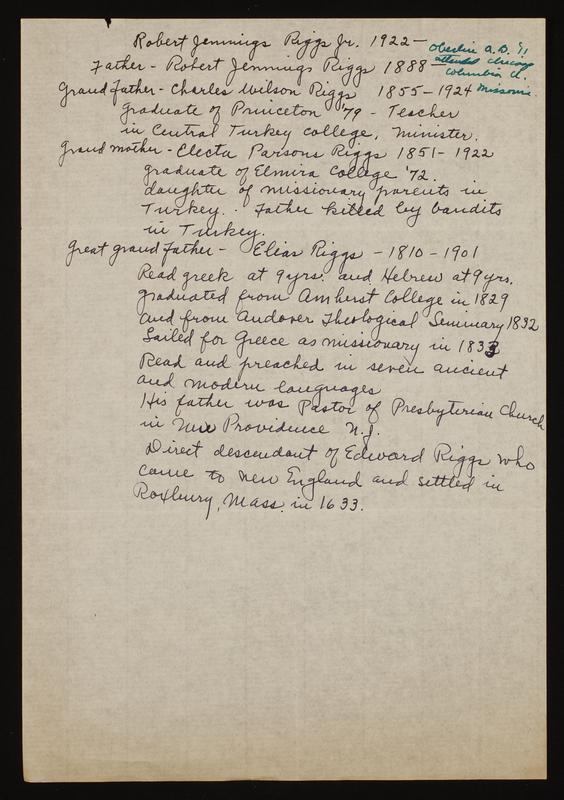 Robert Jennings Riggs Jr. 1922-
Oberlin A.B. '11
attended Chicago
Columbia U.
Missouri
Father - Robert Jennings Riggs 1888-
Grand father - Charles Wilson Riggs 1855-1924
Graduate of Princeton '79 - Teacher
in Central Turkey College, Minister.
Grand mother - Electa Parsons Riggs 1851-1922
graduate of Elmira College '72.
daughter of missionary parents in
Turkey.. Father killed by bandits
in Turkey.
Great grand father - Elias Riggs - 1810-1901
Read greek at 9 yrs. and Hebrew at 9 yrs.
graduated from Amherst College in 1829
and from Andover Theological Seminary 1832
Sailed for Greece as missionary in 1833
Read and preached in seven ancient
and modern languages
His father was Pastor of Presbyterian Church
in New Providence N.J.
Direct descendant of Edward Riggs who
came to New England and settled in
Roxbury, Mass. in 1633.